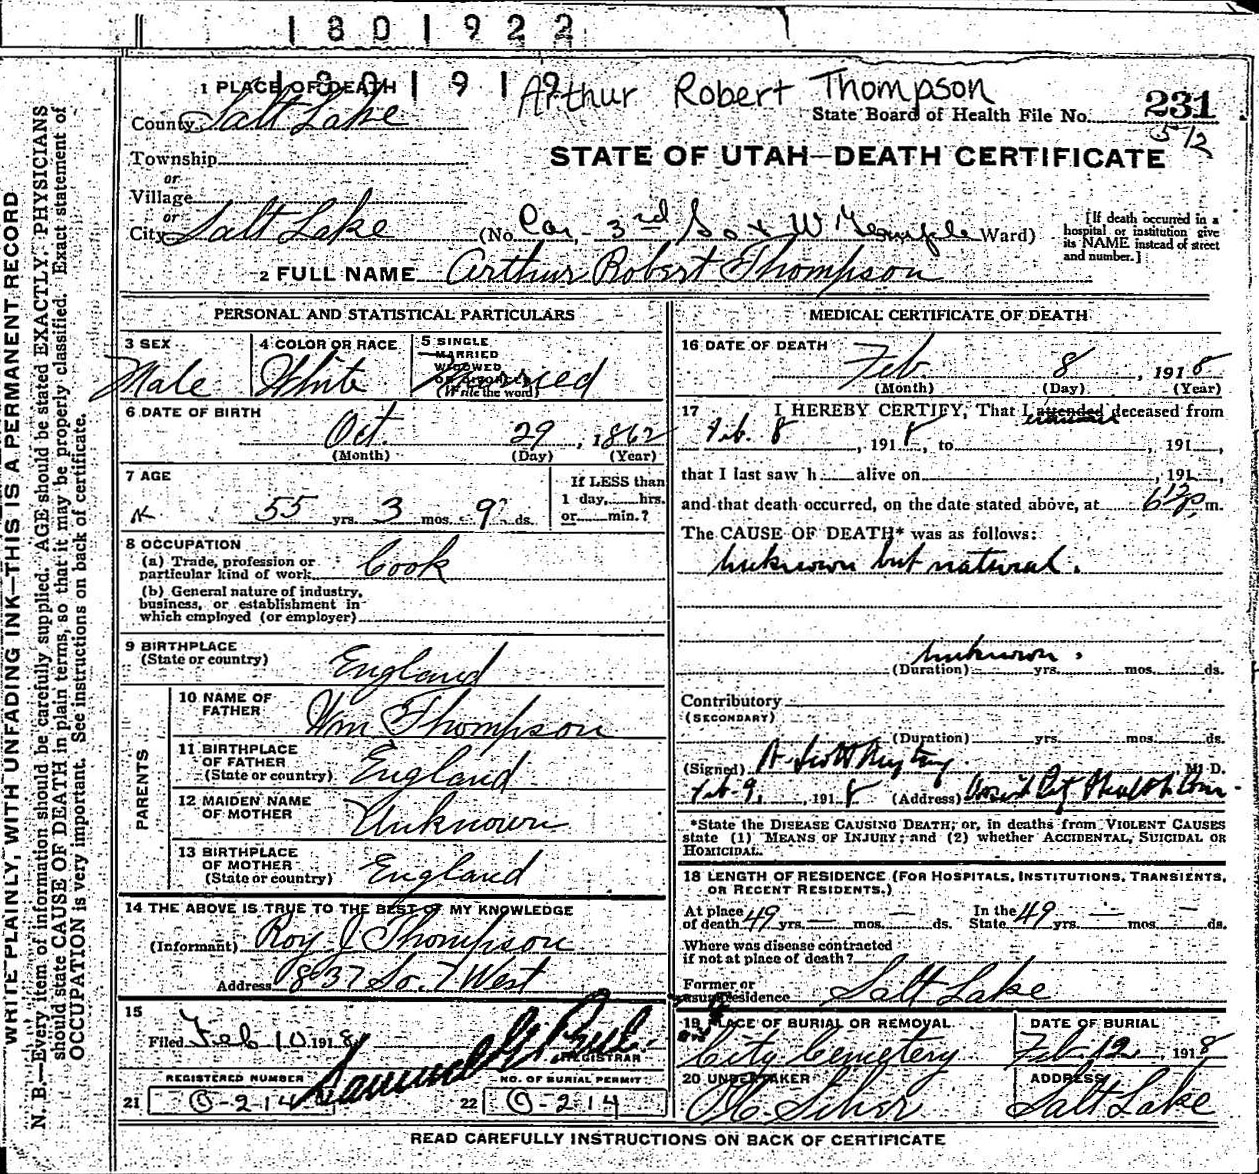 1801922
1801919
Arthur Robert Thompson
1 PLACE OF DEATH
State Board of Health File No. 231
512
County Salt Lake
STATE OF UTAH—DEATH CERTIFICATE
Township
or
Village
or
City Salt Lake (No. Cor. 3rd So & W Temple Ward)
[If death occurred in a hospital or institution give its NAME instead of street and number.]
2 FULL NAME Arthur Robert Thompson
PERSONAL AND STATISTICAL PARTICULARS
3 SEX
Male
4 COLOR OR RACE
White
5 SINGLE
MARRIED
WIDOWED
OR DIVORCED
(Write the word)
Married
6 DATE OF BIRTH
Oct. 29, 1862
(Month) (Day) (Year)
7 AGE
55 yrs. 3 mos. 9 ds.
If LESS than
1 day, hrs.
or min.?
8 OCCUPATION
(a) Trade, profession or
particular kind of work Cook
(b) General nature of industry,
business, or establishment in
which employed (or employer)
9 BIRTHPLACE
(State or country) England
PARENTS
10 NAME OF
FATHER Wm Thompson
11 BIRTHPLACE
OF FATHER
(State or country) England
12 MAIDEN NAME
OF MOTHER Unknown
13 BIRTHPLACE
OF MOTHER
(State or country) England
14 THE ABOVE IS TRUE TO THE BEST OF MY KNOWLEDGE
(Informant) Roy J Thompson
Address 837 So. 7 West
15
Filed Feb 10 1918
REGISTRAR
REGISTERED NUMBER
21 0-214
NO. OF BURIAL PERMIT
22 0-214
MEDICAL CERTIFICATE OF DEATH
16 DATE OF DEATH
Feb 8, 1918
(Month) (Day) (Year)
17 I HEREBY CERTIFY, That I attended deceased from
Feb. 8, 1918, to , 191 ,
that I last saw h alive on , 191 ,
and that death occurred, on the date stated above, at m.
The CAUSE OF DEATH* was as follows:
Unknown but natural.
Unknown.
(Duration) yrs. mos. ds.
Contributory
(SECONDARY)
(Duration) yrs. mos. ds.
(Signed) M. D.
Feb. 9, 1918 (Address)
*State the DISEASE CAUSING DEATH; or, in deaths from VIOLENT CAUSES
state (1) MEANS OF INJURY; and (2) whether ACCIDENTAL, SUICIDAL OR
HOMICIDAL.
18 LENGTH OF RESIDENCE (FOR HOSPITALS, INSTITUTIONS, TRANSIENTS,
OR RECENT RESIDENTS.)
At place
of death 49 yrs. — mos. — ds.
In the
State 49 yrs. — mos. — ds.
Where was disease contracted
if not at place of death?
Former or
usual residence Salt Lake
19 PLACE OF BURIAL OR REMOVAL
City Cemetery
DATE OF BURIAL
Feb 12, 1918
20 UNDERTAKER
ADDRESS
Salt Lake
READ CAREFULLY INSTRUCTIONS ON BACK OF CERTIFICATE
WRITE PLAINLY, WITH UNFADING INK—THIS IS A PERMANENT RECORD
N. B.—Every item of information should be carefully supplied. AGE should be stated EXACTLY. PHYSICIANS
should state CAUSE OF DEATH in plain terms, so that it may be properly classified. Exact statement of
OCCUPATION is very important. See instructions on back of certificate.